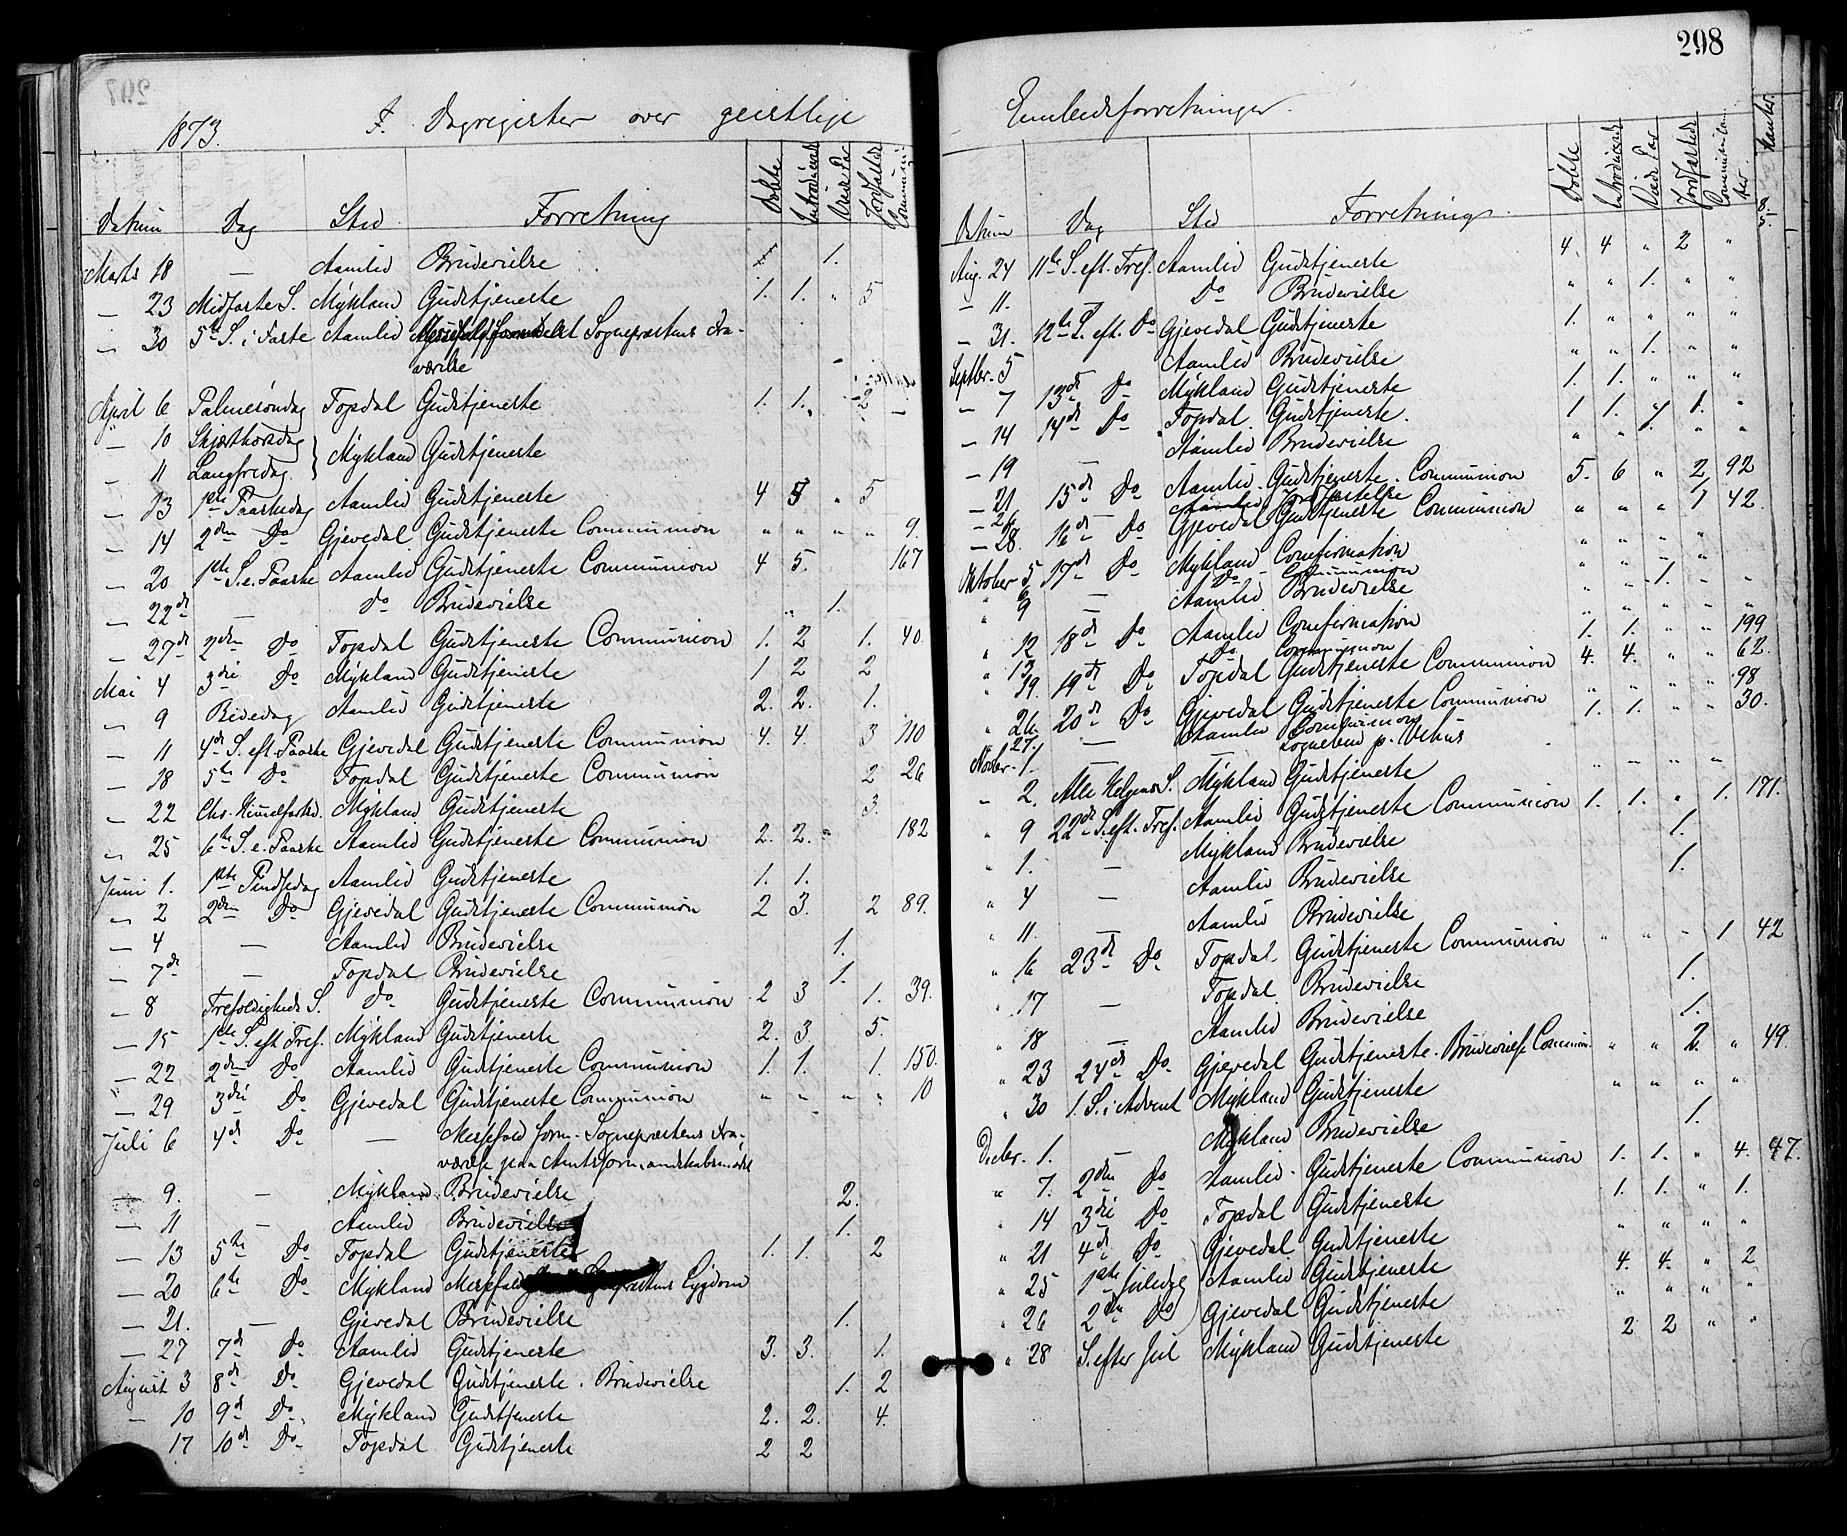 298
1873. Dagregister over geistlige Embedsforretninger.
Datum Dag Sted Forretning Døbte Introducerede Viede Par Jordfæstede Communi
Marts 18 — Aamlid Brudevielse 1.
— 23 Midfaste S. Mykland Gudstjeneste 1. 1. " 5
— 30 5te S. i Faste Aamlid Sognepræstens Fra-
værelse
April 6 Palmesøndag Topdal Gudstjeneste 1. 1. 2 —
— 10 Skjærthorsdag
— 11 Langfredag } Mykland Gudstjeneste
— 13 1ste Paaskedag Aamlid Gudstjeneste 4 5 " 5
— 14 2den Do Gjevedal Gudstjeneste Communion " " " " 9.
— 20 1ste S. e. Paaske Aamlid Gudstjeneste Communion 4 5. 167
— 22de — Do Brudevielse " 1.
— 27de 2den Do Topdal Gudstjeneste Communion 1. 2 1. 40.
Mai 4 3die Do Mykland Gudstjeneste 1 2 2
— 9 Bededag Aamlid Gudstjeneste 2. 2. 1.
— 11 4de S. eft. Paaske Gjevedal Gudstjeneste Communion 4. 4. 3 110
— 18 5te Do Topdal Gudstjeneste Communion 2 26
— 22 Chr. Himmelfartsd. Mykland Gudstjeneste 3.
— 25 6te S. e. Paaske Aamlid Gudstjeneste Communion 2. 2. " 182
Juni 1. 1ste Pindsedag Aamlid Gudstjeneste 1. 1.
— 2 2den Do Gjevedal Gudstjeneste Communion 2 3. 2 89.
— 4 — Aamlid Brudevielse 1.
— 7de — Topdal Brudevielse 1.
— 8 Trefoldigheds S. Do Gudstjeneste Communion 2 3 1. 39.
— 15 1ste S. eft Tref. Mykland Gudstjeneste 2. 3. 5.
— 22 2den Do Aamlid Gudstjeneste Communion 1. 1. 1. 150.
— 29 3die Do Gjevedal Gudstjeneste Communion " " " " 10
Juli 6 4de Do — Messefald form. Sognepræstens Fra-
værelse paa Amtsformandskabsmødet
— 9. — Mykland Brudevielse 2.
— 11 — Aamlid Brudevielse 1.
— 13 5te Do Topdal Gudstjeneste 1. 1. 2
— 20 6te Do Mykland Messefald Sygdom
— 21. — Gjevedal Brudevielse 1.
— 27 7de Do Aamlid Gudstjeneste 3. 3. 1.
August 3 8de Do Gjevedal Gudstjeneste. Brudevielse 1. 2
— 10 9de Do Mykland Gudstjeneste 2. 2. 4.
17 10de Do Topdal Gudstjeneste 2 2
Datum Dag Sted Forretning. Døbte Introducerede Viede Par Jordfæstede Communikanter
Aug. 24 11te S. eft. Tref. Aamlid Gudstjeneste 4. 4 " 2 "
— 11. — Do Brudevielse " " 1. " "
— 31. 12te S. eft. Do Gjevedal Gudstjeneste 1. " " " "
Septbr. 5 Aamlid Brudevielse " " 1. " "
— 7 13de Do Mykland Gudstjeneste 1. 1. " " "
— 14 14de Do Topdal. Gudstjeneste. 1 1. " 1. "
— 19 — Aamlid Brudevielse " " 1. " "
— 21 15de Do Aamlid. Gudstjeneste. Communion 5. 6 " 2 92
— 26 — Aamlid Jordfæstelse
— 28. 16de Do Gjevedal Gudstjeneste Communion " " " 1 42.
Oktober 5 17de Do Mykland Confirmation " " " "
" 6 Do Communion
" 9 — Aamlid Brudevielse " " 1. " "
" 12 18de Do Aamlid Confirmation " " " " "
" 13 Do Communion 199
" 19. 19de Do Topdal Gudstjeneste Communion 1. 1. " " 62.
" 26. 20de Do Gjevedal Gudstjeneste Communion 4. 4. " " 98
" 27. — Aamlid Communion 30.
Novbr. 1. Sognebud p. Vehus
" 2. Alle Helgens S. Mykland Gudstjeneste " " " " "
" 9 22de S. eft. Tref. Aamlid Gudstjeneste Communion 1. 1. " 1. 171.
" 1. — Mykland Brudevielse 1.
" 4 — Aamlid Brudevielse 1.
" 11. — Aamlid Brudevielse
" 16 23de Do Topdal. Gudstjeneste Communion " " " 1 42
" 17 — Topdal. Brudevielse 1.
" 18 — Aamlid Brudevielse 1.
" 23 24de Do Gjevedal Gudstjeneste. Brudevielse Communion " " 2. " 49.
" 30 1. S. i Advent Mykland Gudstjeneste " " " "
Decbr. 1. — Mykland Brudevielse 1.
" 7. 2den Do Aamlid. Gudstjeneste Communion 1. 1. " 4. 47.
" 14 3die Do Topdal Gudstjeneste 1. 1. " 1.
" 21 4de Do Gjevedal Gudstjeneste " " " "
" 25 1ste Juledag Aamlid Gudstjeneste 4. 4. " 2
" 26 2den Do Gjevedal Gudstjeneste " " " "
" 28 S. efter Jul Mykland Gudstjeneste 2 2 " "